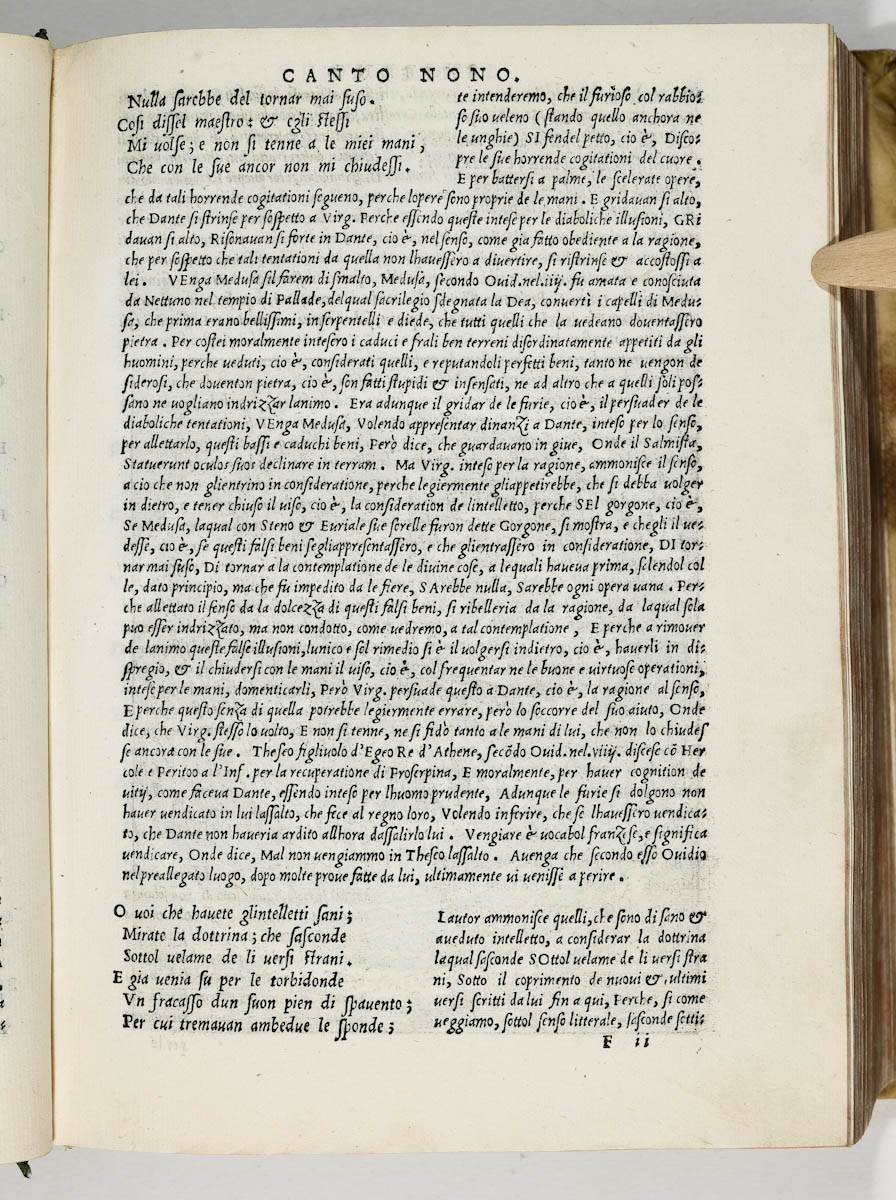 CANTO NONO.
Nulla sarebbe del tornar mai suso.
Cosi dissel maestro: & egli stessi
Mi volse; e non si tenne a le miei mani,
Che con le sue ancor non mi chiudessi.
te intenderemo, che il furioso col rabbio-
so suo veleno (stando quello anchora ne
le unghie) SI fendel petto, cio è, Disco-
pre le sue horrende cogitationi del cuore.
E per battersi a palme, le scelerate opere,
che da tali horrende cogitationi segueno, perche lopere sono proprie de le mani. E gridauan si alto,
che Dante si strinse per sospetto a Virg. Perche essendo queste intese per le diaboliche illusioni, GRi
dauan si alto, Risonauan si forte in Dante, cio è, nel senso, come gia fatto obediente a la ragione,
che per sospetto che tali tentationi da quella non lhauessero a diuertire, si ristrinse & accostossi a
lei. VEnga Medusa sil farem di smalto, Medusa, secondo Ouid.nel.iiij. fu amata e conosciuta
da Nettuno nel tempio di Pallade, delqual sacrilegio sdegnata la Dea, conuertì i capelli di Medu-
sa, che prima erano bellissimi, in serpentelli e diede, che tutti quelli che la vedeano douentassero
pietra. Per costei moralmente intesero i caduci e frali ben terreni disordinatamente appetiti da gli
huomini, perche veduti, cio è, considerati quelli, e reputandoli perfetti beni, tanto ne uengon de
siderosi, che douenton pietra, cio è, son fatti stupidi & insensati, ne ad altro che a quelli soli pos-
sano ne uogliano indrizzar lanimo. Era adunque il gridar de le furie, cio è, il persuader de le
diaboliche tentationi, VEnga Medusa, Volendo appresentar dinanzi a Dante, inteso per lo senso,
per allettarlo, questi bassi e caduchi beni, Però dice, che guardauano in giue, Onde il Salmista,
Statuerunt oculos suos declinare in terram. Ma Virg. inteso per la ragione, ammonisce il senso,
a cio che non glientrino in consideratione, perche legiermente gliappetirebbe, che si debba uolger
in dietro, e tener chiuso il uiso, cio è, la consideration de lintelletto, perche SEl gorgone, cio è,
Se Medusa, laqual con Steno & Euriale sue sorelle furon dette Gorgone, si mostra, e chegli il ue-
desse, cio è, se questi falsi beni segliappresentassero, e che glientrassero in consideratione, DI tor-
nar mai suso, Di tornar a la contemplatione de le diuine cose, a lequali haueua prima, selendol col
le, dato principio, ma che fu impedito da le fiere, SArebbe nulla, Sarebbe ogni opera uana. Per-
che allettato il senso da la dolcezza di questi falsi beni, si ribelleria da la ragione, da laqual sola
puo esser indrizzato, ma non condotto, come uedremo, a tal contemplatione, E perche a rimouer
de lanimo queste false illusioni, lunico e sol rimedio si è il volgersi indietro, cio è, hauerli in di-
spregio, & il chiudersi con le mani il uiso, cio è, col frequentar ne le buone e virtuose operationi,
intese per le mani, domenticarli, Però Virg. persuade questo a Dante, cio è, la ragione al senso,
E perche questo senza di quella potrebbe legiermente errare, però lo soccorre del suo aiuto, Onde
dice, che Virg. stesso lo volto, E non si tenne, ne si fidò tanto a le mani di lui, che non lo chiudes
se ancora con le sue. Theseo figliuolo d'Egeo Re d'Athene, secōdo Ouid.nel.viiij. discese cō Her
cole e Peritoo a l'Inf. per la recuperatione di Proserpina, E moralmente, per hauer cognition de
uitij, come faceua Dante, essendo inteso per lhuomo prudente, Adunque le furie si dolgono non
hauer vendicato in lui lassalto, che fece al regno loro, Volendo inferire, che se lhauessero vendica-
to, che Dante non haueria ardito allhora dassalirlo lui. Vengiare è uocabol franzese, e significa
uendicare, Onde dice, Mal non vengiammo in Theseo lassalto. Auenga che secondo esso Ouidio
nel preallegato luogo, dopo molte proue fatte da lui, ultimamente ui venisse a perire.
O voi che hauete glintelletti sani;
Mirate la dottrina; che sasconde
Sottol velame de li versi strani.
E gia venia su per le torbidonde
Vn fracasso dun suon pien di spauento;
Per cui tremauan ambedue le sponde;
Lautor ammonisce quelli, che sono di sano &
aueduto intelletto, a considerar la dottrina
laqual sasconde SOttol velame de li versi stra
ni, Sotto il coprimento de nuoui &, ultimi
versi scritti da lui fin a qui, Perche, si come
ueggiamo, sottol senso litterale, sasconde setti-
F ii